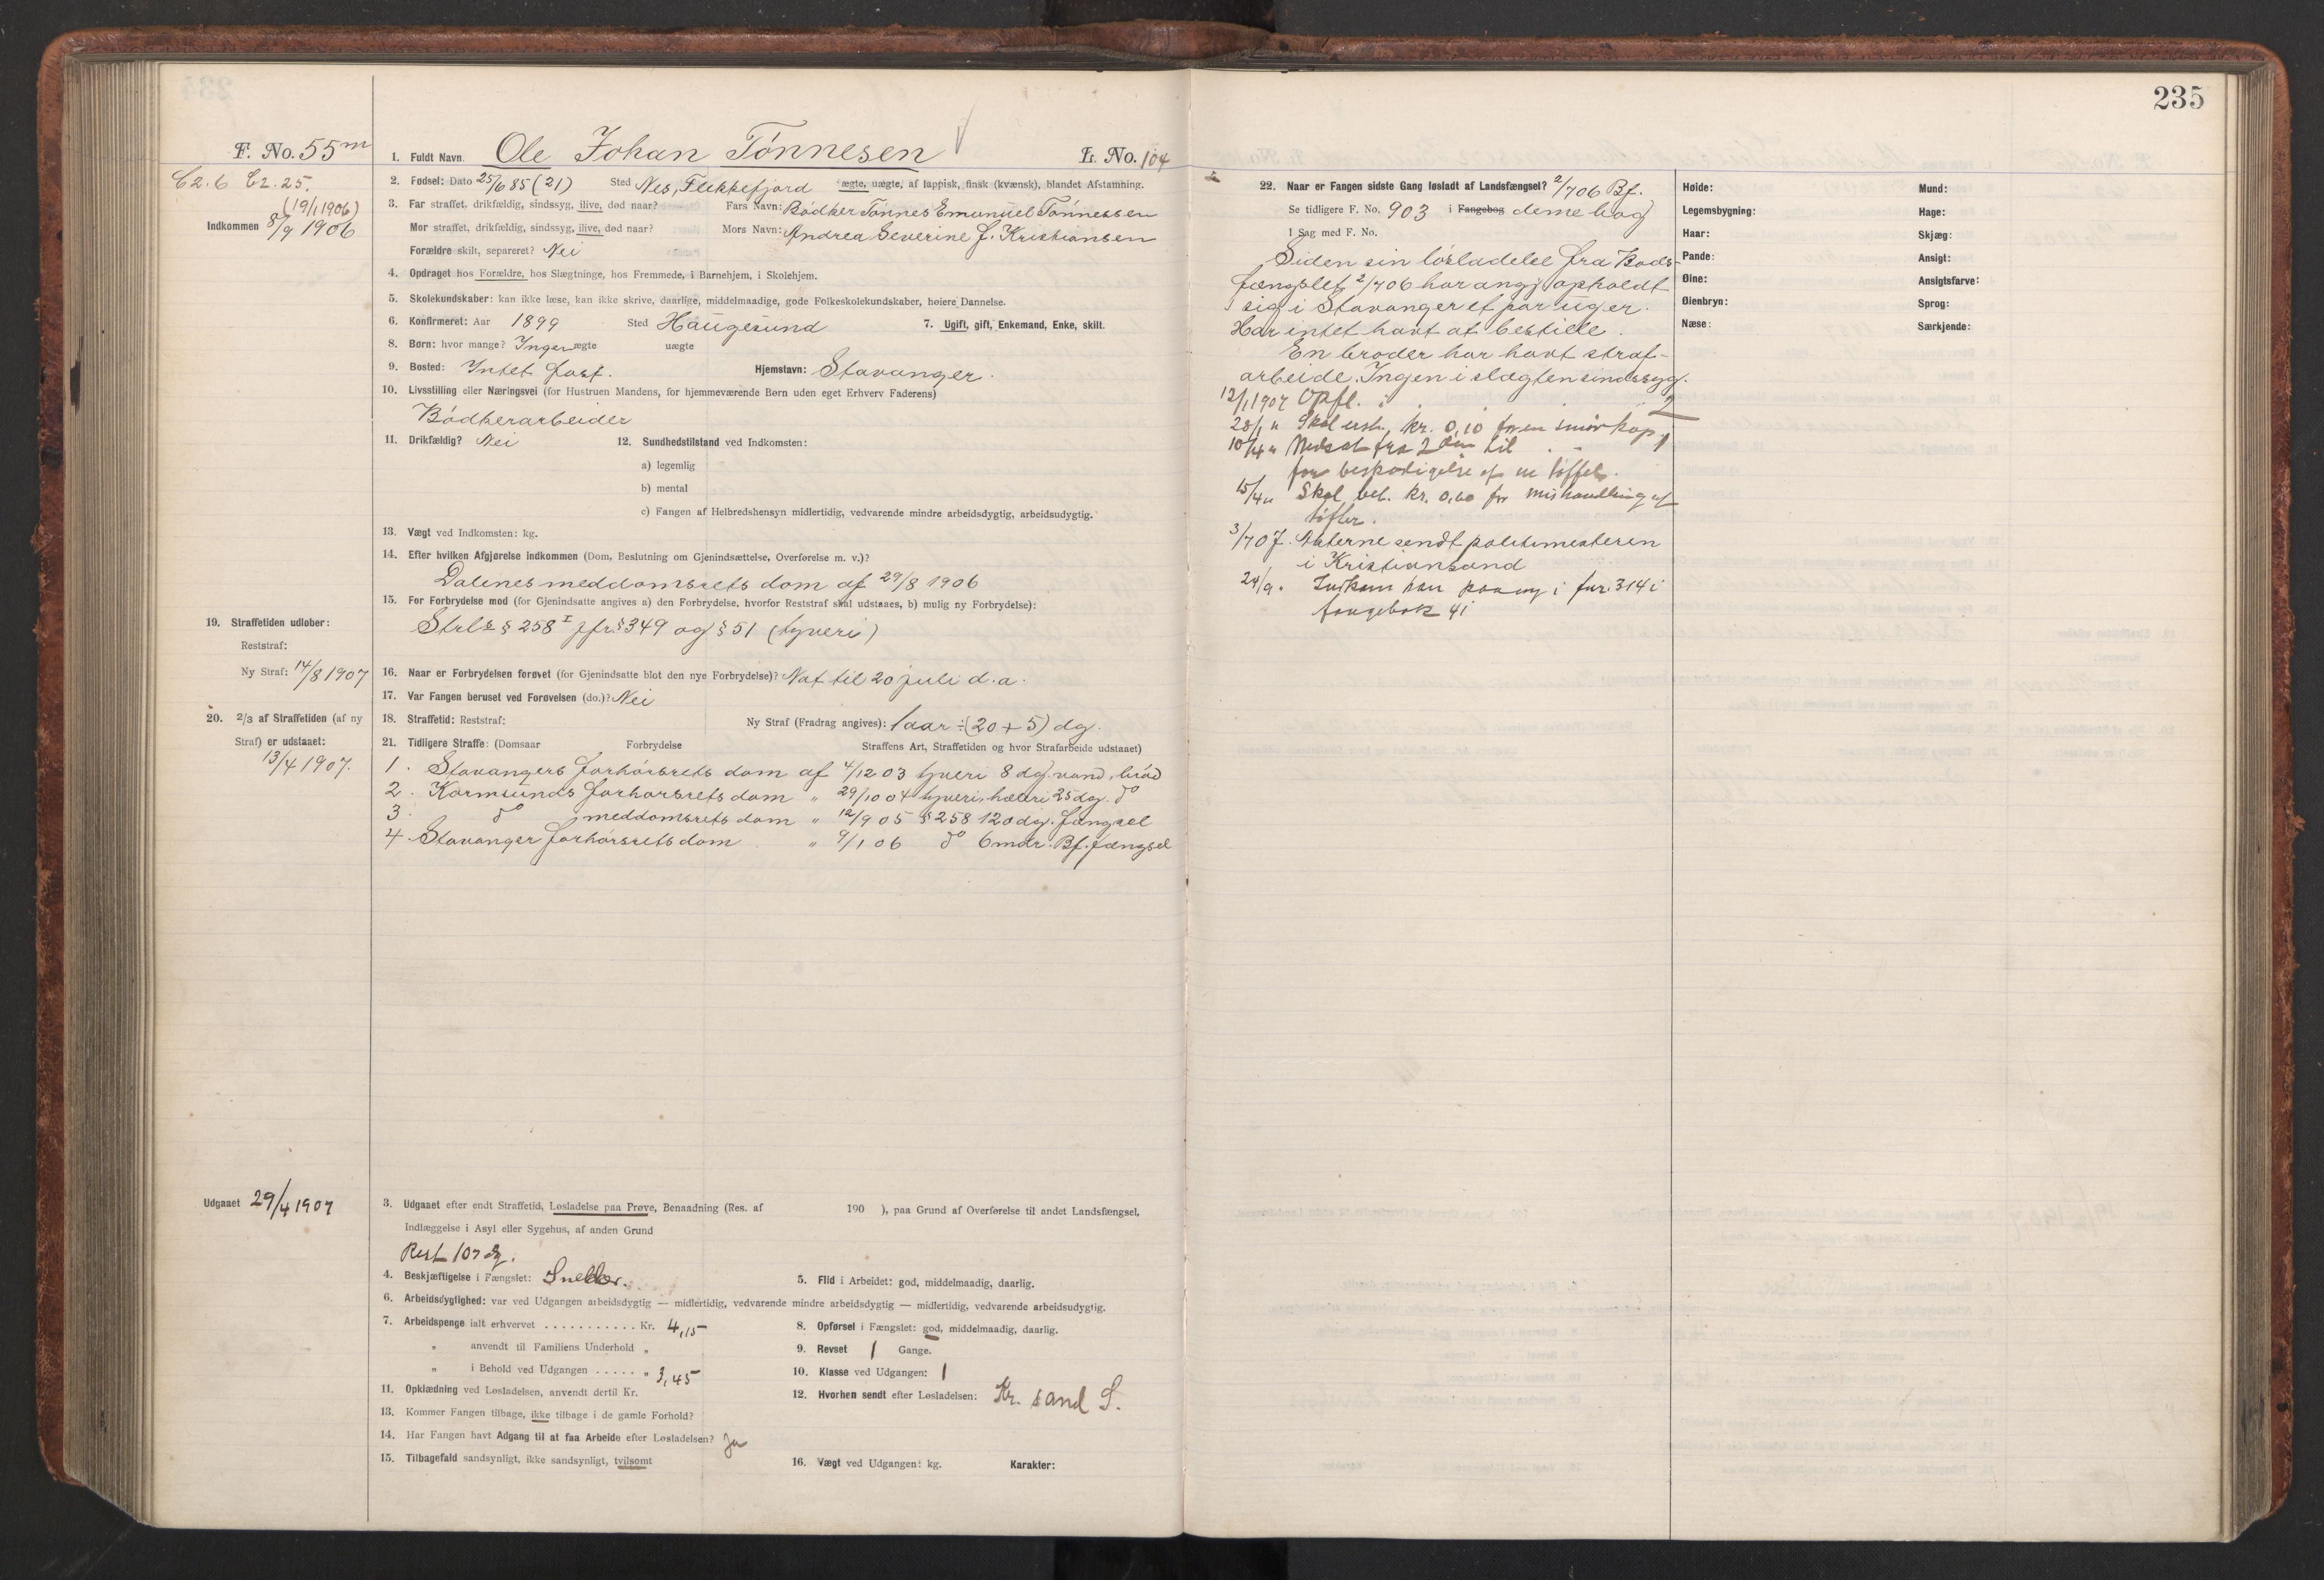 235
F. No. 55m
1. Fuldt Navn. Ole Johan Tönnesen
L. No. 104
C2.6 C2.25.
(19/1 1906)
Indkommen 8/9 1906
2. Fødsel: Dato 25/6 85 (21) Sted Nes, Flekkefjord ægte, uægte, af lappisk, finsk (kvænsk), blandet Afstamning.
3. Far straffet, drikfældig, sindssyg, ilive, død naar? Fars Navn: Bödker Tönnes Emanuel Tönnessen
Mor straffet, drikfældig, sindssyg, ilive, død naar? Mors Navn: Andrea Severine f. Kristiansen
Forældre skilt, separeret? Nei
4. Opdraget hos Forældre, hos Slægtninge, hos Fremmede, i Barnehjem, i Skolehjem.
5. Skolekundskaber: kan ikke læse, kan ikke skrive, daarlige, middelmaadige, gode Folkeskolekundskaber, høiere Dannelse.
6. Konfirmeret: Aar 1899 Sted Haugesund 7. Ugift, gift, Enkemand, Enke, skilt.
8. Børn: hvor mange? Ingen ægte uægte
9. Bosted: Intet fast. Hjemstavn: Stavanger.
10. Livsstilling eller Næringsvei (for Hustruen Mandens, for hjemmeværende Børn uden eget Erhverv Faderens)
Bödkerarbeider
11. Drikfældig? Nei 12. Sundhedstilstand ved Indkomsten:
a) legemlig
b) mental
c) Fangen af Helbredshensyn midlertidig, vedvarende mindre arbeidsdygtig, arbeidsudygtig.
13. Vægt ved Indkomsten: kg.
14. Efter hvilken Afgjørelse indkommen (Dom, Beslutning om Gjenindsættelse, Overførelse m. v.)?
Dalenes meddomsrets dom af 29/8 1906
15. For Forbrydelse mod (for Gjenindsatte angives a) den Forbrydelse, hvorfor Reststraf skal udstaaes, b) mulig ny Forbrydelse):
Strl's § 258 I jfr. § 349 og § 51 (tyveri)
19. Straffetiden udløber:
Reststraf:
Ny Straf: 14/8 1907
16. Naar er Forbrydelsen forøvet (for Gjenindsatte blot den nye Forbrydelse)? Nat til 20 juli d. a.
17. Var Fangen beruset ved Forøvelsen (do.)? Nei
20. 2/3 af Straffetiden (af ny
Straf) er udstaaet:
13/4 1907.
18. Straffetid: Reststraf: Ny Straf (Fradrag angives): 1 aar ÷ (20 + 5) dg.
21. Tidligere Straffe: (Domsaar Forbrydelse Straffens Art, Straffetiden og hvor Strafarbeide udstaaet)
1. Stavangers forhörsrets dom af 4/12 03 tyveri 8 dg. vand, bröd
2. Karmsunds forhörsrets dom " 29/10 04 tyveri, hæleri 25 dg. do
3. do meddomsrets dom " 12/9 05 § 258 120 dg. fængsel
4. Stavanger forhörsrets dom " 9/1 06 do 6 mdr. Bf. fængsel
Udgaaet 29/4 1907
3. Udgaaet efter endt Straffetid, Løsladelse paa Prøve, Benaadning (Res. af 190 ), paa Grund af Overførelse til andet Landsfængsel,
Indlæggelse i Asyl eller Sygehus, af anden Grund
Rest 107 dg.
4. Beskjæftigelse i Fængslet: Snekker. 5. Flid i Arbeidet: god, middelmaadig, daarlig.
6. Arbeidsdygtighed: var ved Udgangen arbeidsdygtig — midlertidig, vedvarende mindre arbeidsdygtig — midlertidig, vedvarende arbeidsudygtig.
7. Arbeidspenge ialt erhvervet . . . . . . . . . . . Kr. 4,15 8. Opførsel i Fængslet: god, middelmaadig, daarlig.
" anvendt til Familiens Underhold " 9. Revset 1 Gange.
" i Behold ved Udgangen . . . . . " 3,45 10. Klasse ved Udgangen: 1
11. Opklædning ved Løsladelsen, anvendt dertil Kr. 12. Hvorhen sendt efter Løsladelsen: Kr. sand S.
13. Kommer Fangen tilbage, ikke tilbage i de gamle Forhold?
14. Har Fangen havt Adgang til at faa Arbeide efter Løsladelsen? Ja
15. Tilbagefald sandsynligt, ikke sandsynligt, tvilsomt 16. Vægt ved Udgangen: kg. Karakter:
22. Naar er Fangen sidste Gang løsladt af Landsfængsel? 2/7 06 Bf.
Se tidligere F. No. 903 i Fangebog denne bog
I Sag med F. No.
Siden sin lösladelse fra Bods-
fængslet 2/7 06 har angj. opholdt
sig i Stavanger et par uger.
Har intet havt at bestille.
En broder har havt straf-
arbeide. Ingen i slægten sindssyg.
12/1 1907 Opfl. . . . 2
28/1 " Skal erst. kr. 0,10 for en smörkop
10/4 " Nedsat fra 2den til . . 1
for beskadigelse af en töffel.
15/4 " Skal bet. kr. 0,60 for mishandling af
töfler.
3/7 07. Akterne sendt politimesteren
i Kristiansand
24/9. Indkom han paany i fnr. 314 i
fangebok 41
Høide:
Legemsbygning:
Haar:
Pande:
Øine:
Øienbryn:
Næse:
Mund:
Hage:
Skjæg:
Ansigt:
Ansigtsfarve:
Sprog:
Særkjende: